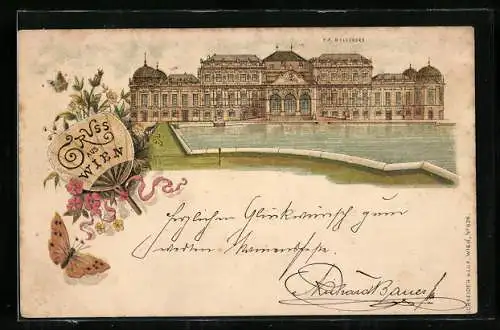 K.K. BELVEDERE
GRUSS
AUS
WIEN
Herzlichen Glückwunsch zum
werten Namensfeste.
Richard Bauer
SCHNEIDER & LUX, WIEN,